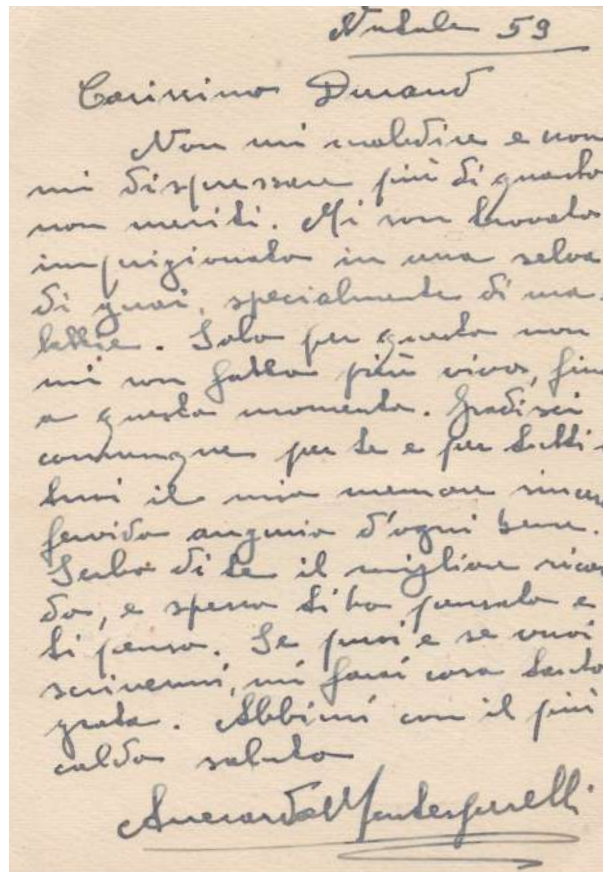 Natale 59
Carissimo Durand
Non mi maledire e non
mi disprezzare più di quanto
non meriti. Mi son trovato
imprigionato in una selva
di guai, specialmente di ma-
lattie. Solo per questo non
mi son fatto più vivo, fino
a questo momento. Gradisci
comunque per te e per tutti i
tuoi il mio memore sincero
fervido augurio d'ogni bene.
Serbo di te il miglior ricor
do, e spesso ti ho pensato e
ti penso. Se puoi e se vuoi
scrivermi, mi farai cosa tanto
grata. Abbimi con il più
caldo saluto